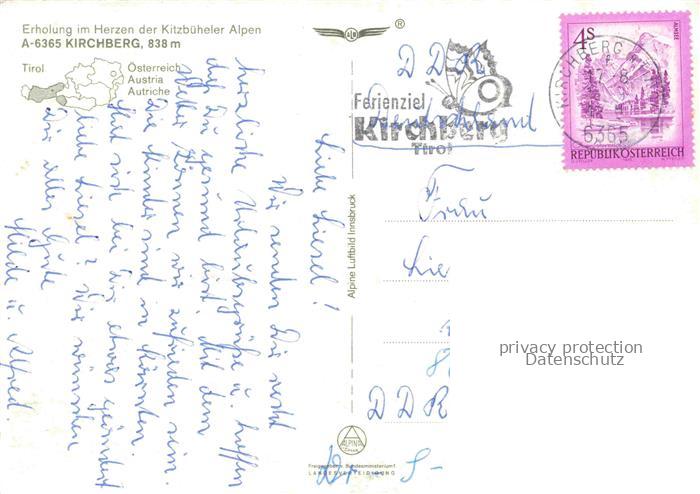 Erholung im Herzen der Kitzbüheler Alpen
A-6365 KIRCHBERG, 838 m
Tirol
Österreich
Austria
Autriche
Liebe Liesel!
Wir senden Dir recht
herzliche Urlaubsgrüße u. hoffen
daß Du gesund bist. Mit dem
Wetter können wir zufrieden sein.
Die Kinder sind in Kärnten.
Hat sich bei Dir etwas geändert
liebe Liesel? Wir wünschen
Dir alles Gute
Hilde u. Alfred
Alpine Luftbild Innsbruck
AD
®
DDR
Deutschland
Ferienziel
Kirchberg
Tirol
KIRCHBERG
6365
4S
ALMSEE
REPUBLIK ÖSTERREICH
Frau
Lie
privacy protection
Datenschutz
DDR
ALPINA
Freigegeben v. Bundesministerium f.
LANDESVERTEIDIGUNG